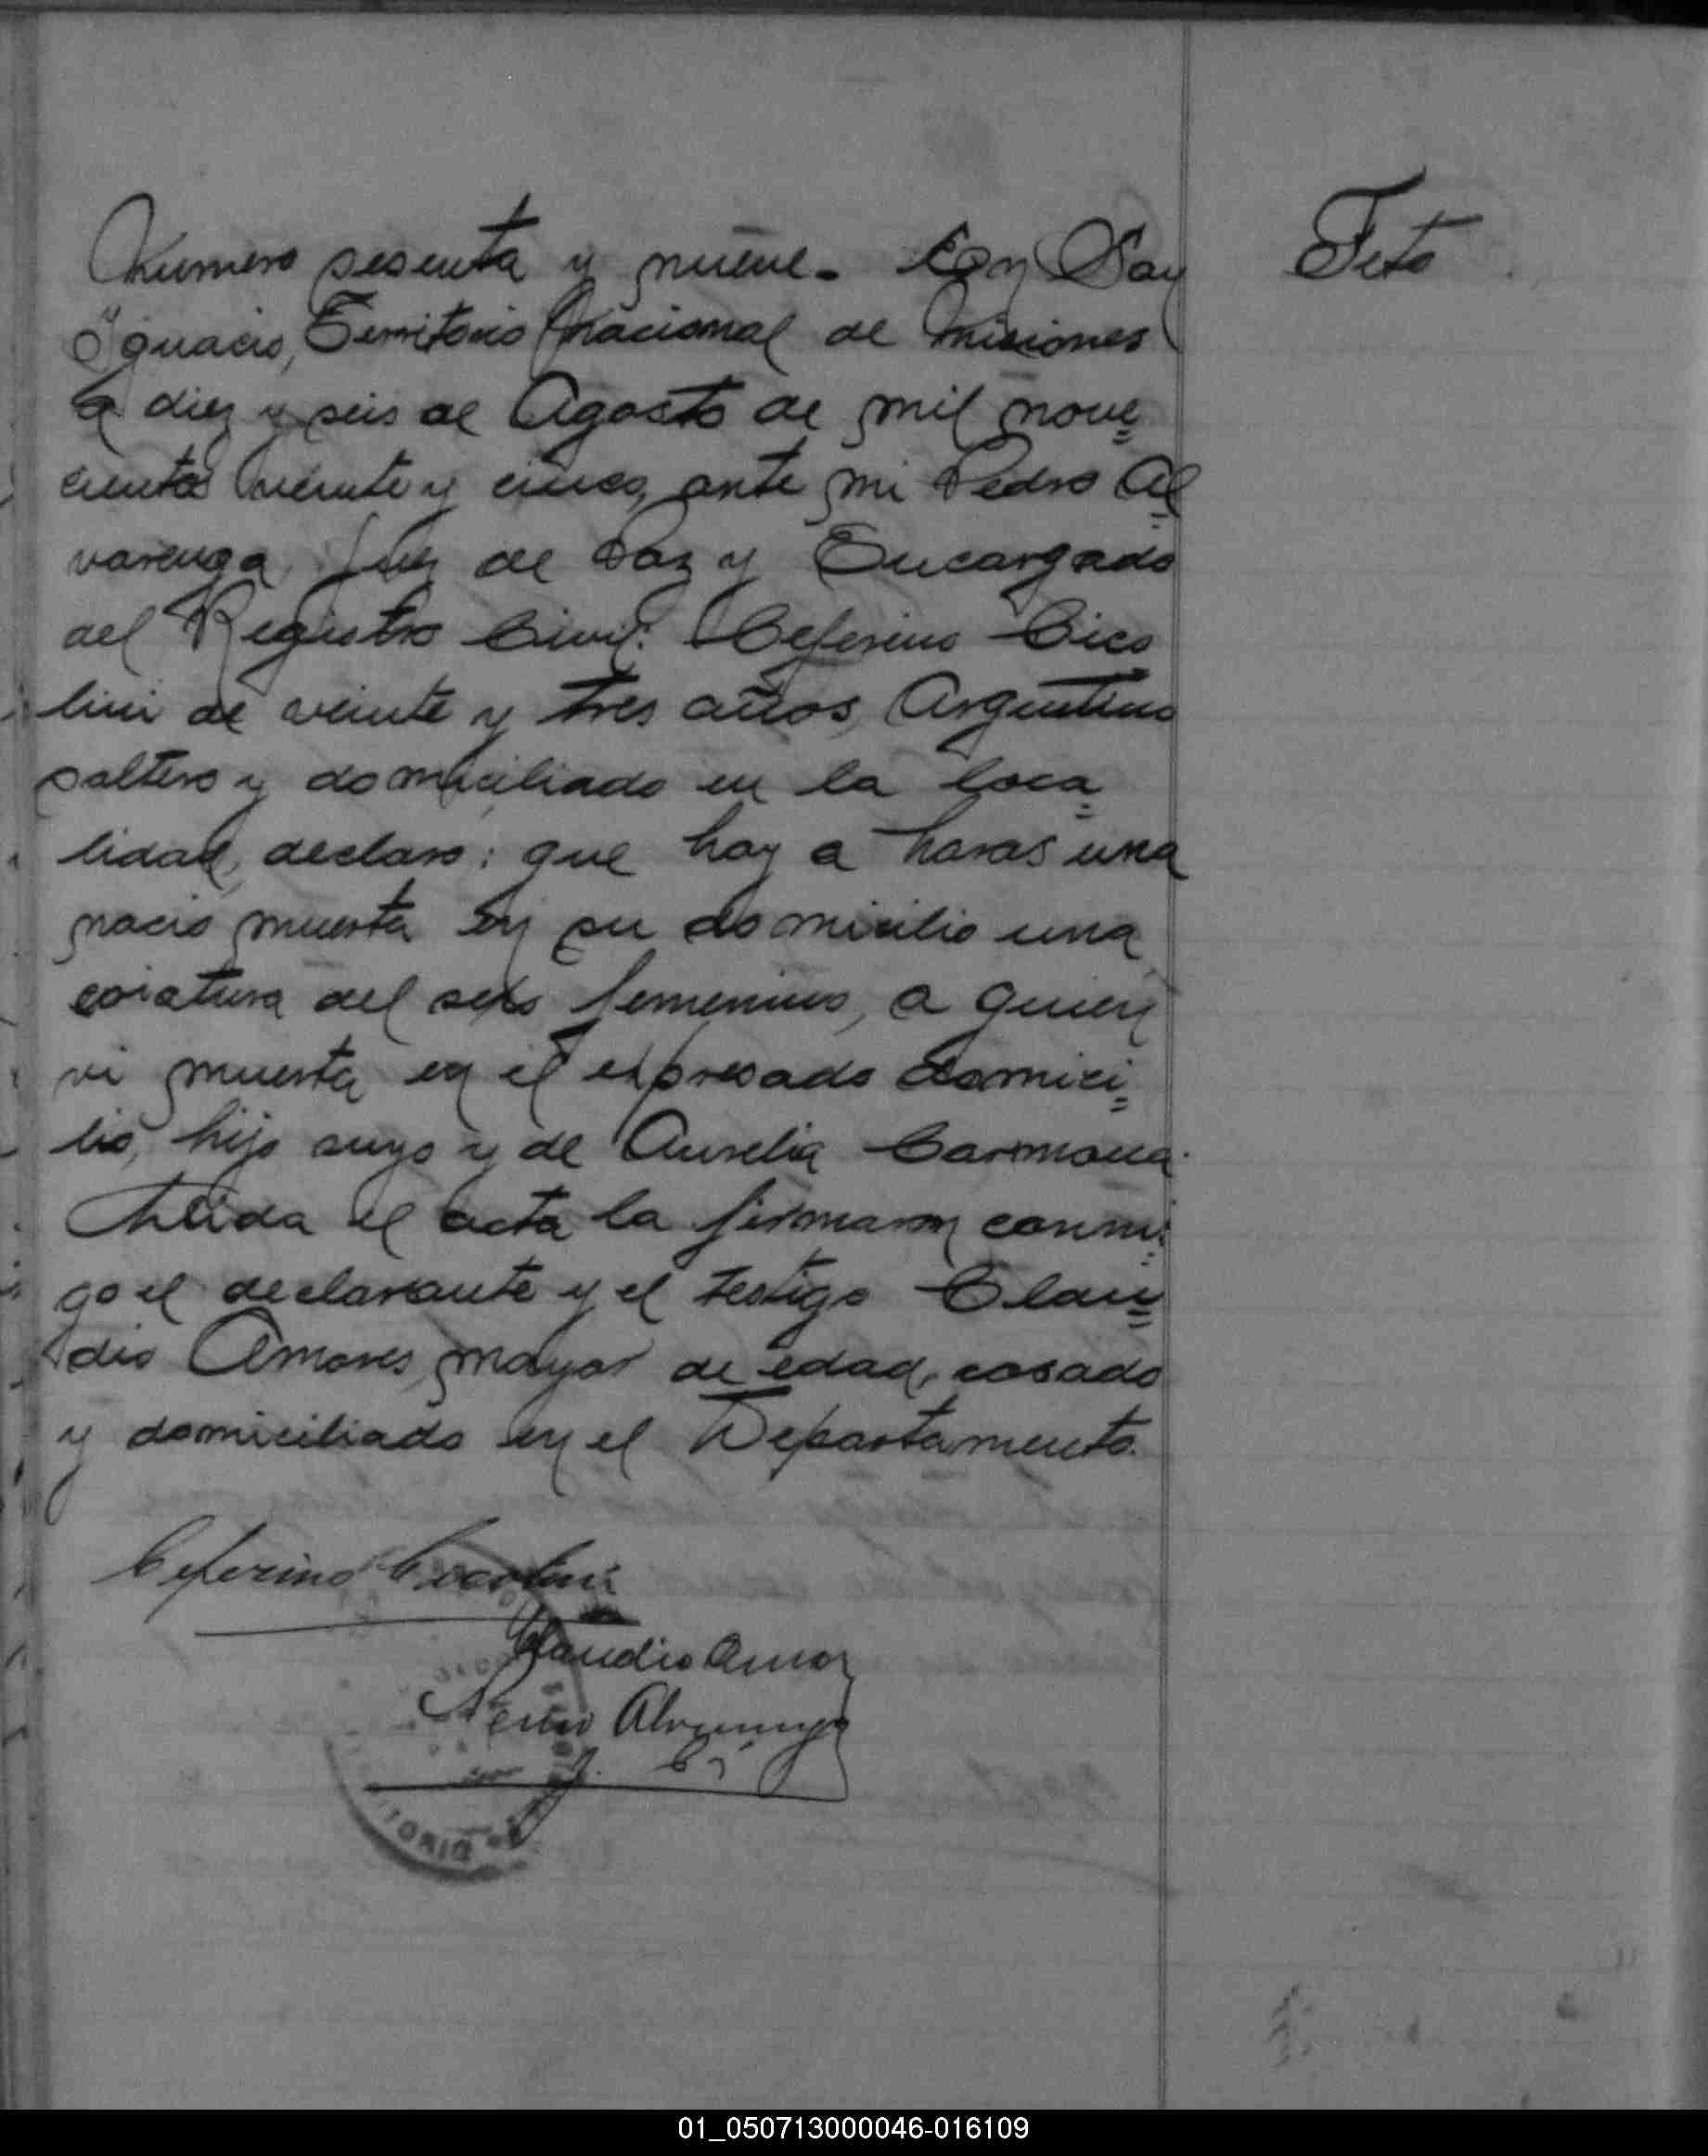 Numero sesenta y nueve. En San
Feto
Ignacio, Territorio Nacional de Misiones
a diez y seis de Agosto de mil nove
cientos veinte y cinco, ante mi Pedro Al
varenga, Juez de Paz y Encargado
del Registro Civil: Ceferino Cico
lini de veinte y tres años, Argentino
soltero y domiciliado en la loca
lidad, declaro: que hoy a horas una
nacio muerta en su domicilio una
criatura del sexo femenino, a quien
vi muerta en el expresado domici
lio, hijo suyo y de Aurelia Carmona.
Leida el acta la firmaron conmi
go el declarante y el testigo Clau
dio Amores, mayor de edad, casado
y domiciliado en el Departamento.
Ceferino Cicolini
Claudio Amor
Alvarenga
01_050713000046-016109